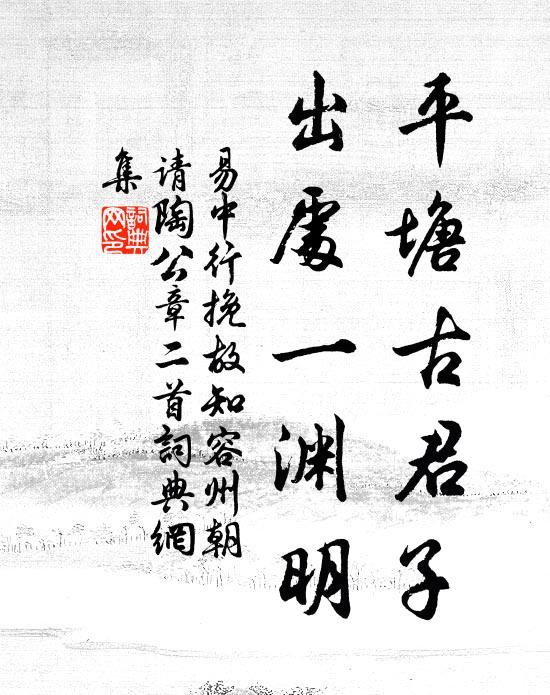 平塘古君子
出處一渊明
易中行挽故知容州朝
请陶公章二首詞典網
集
詞典网印